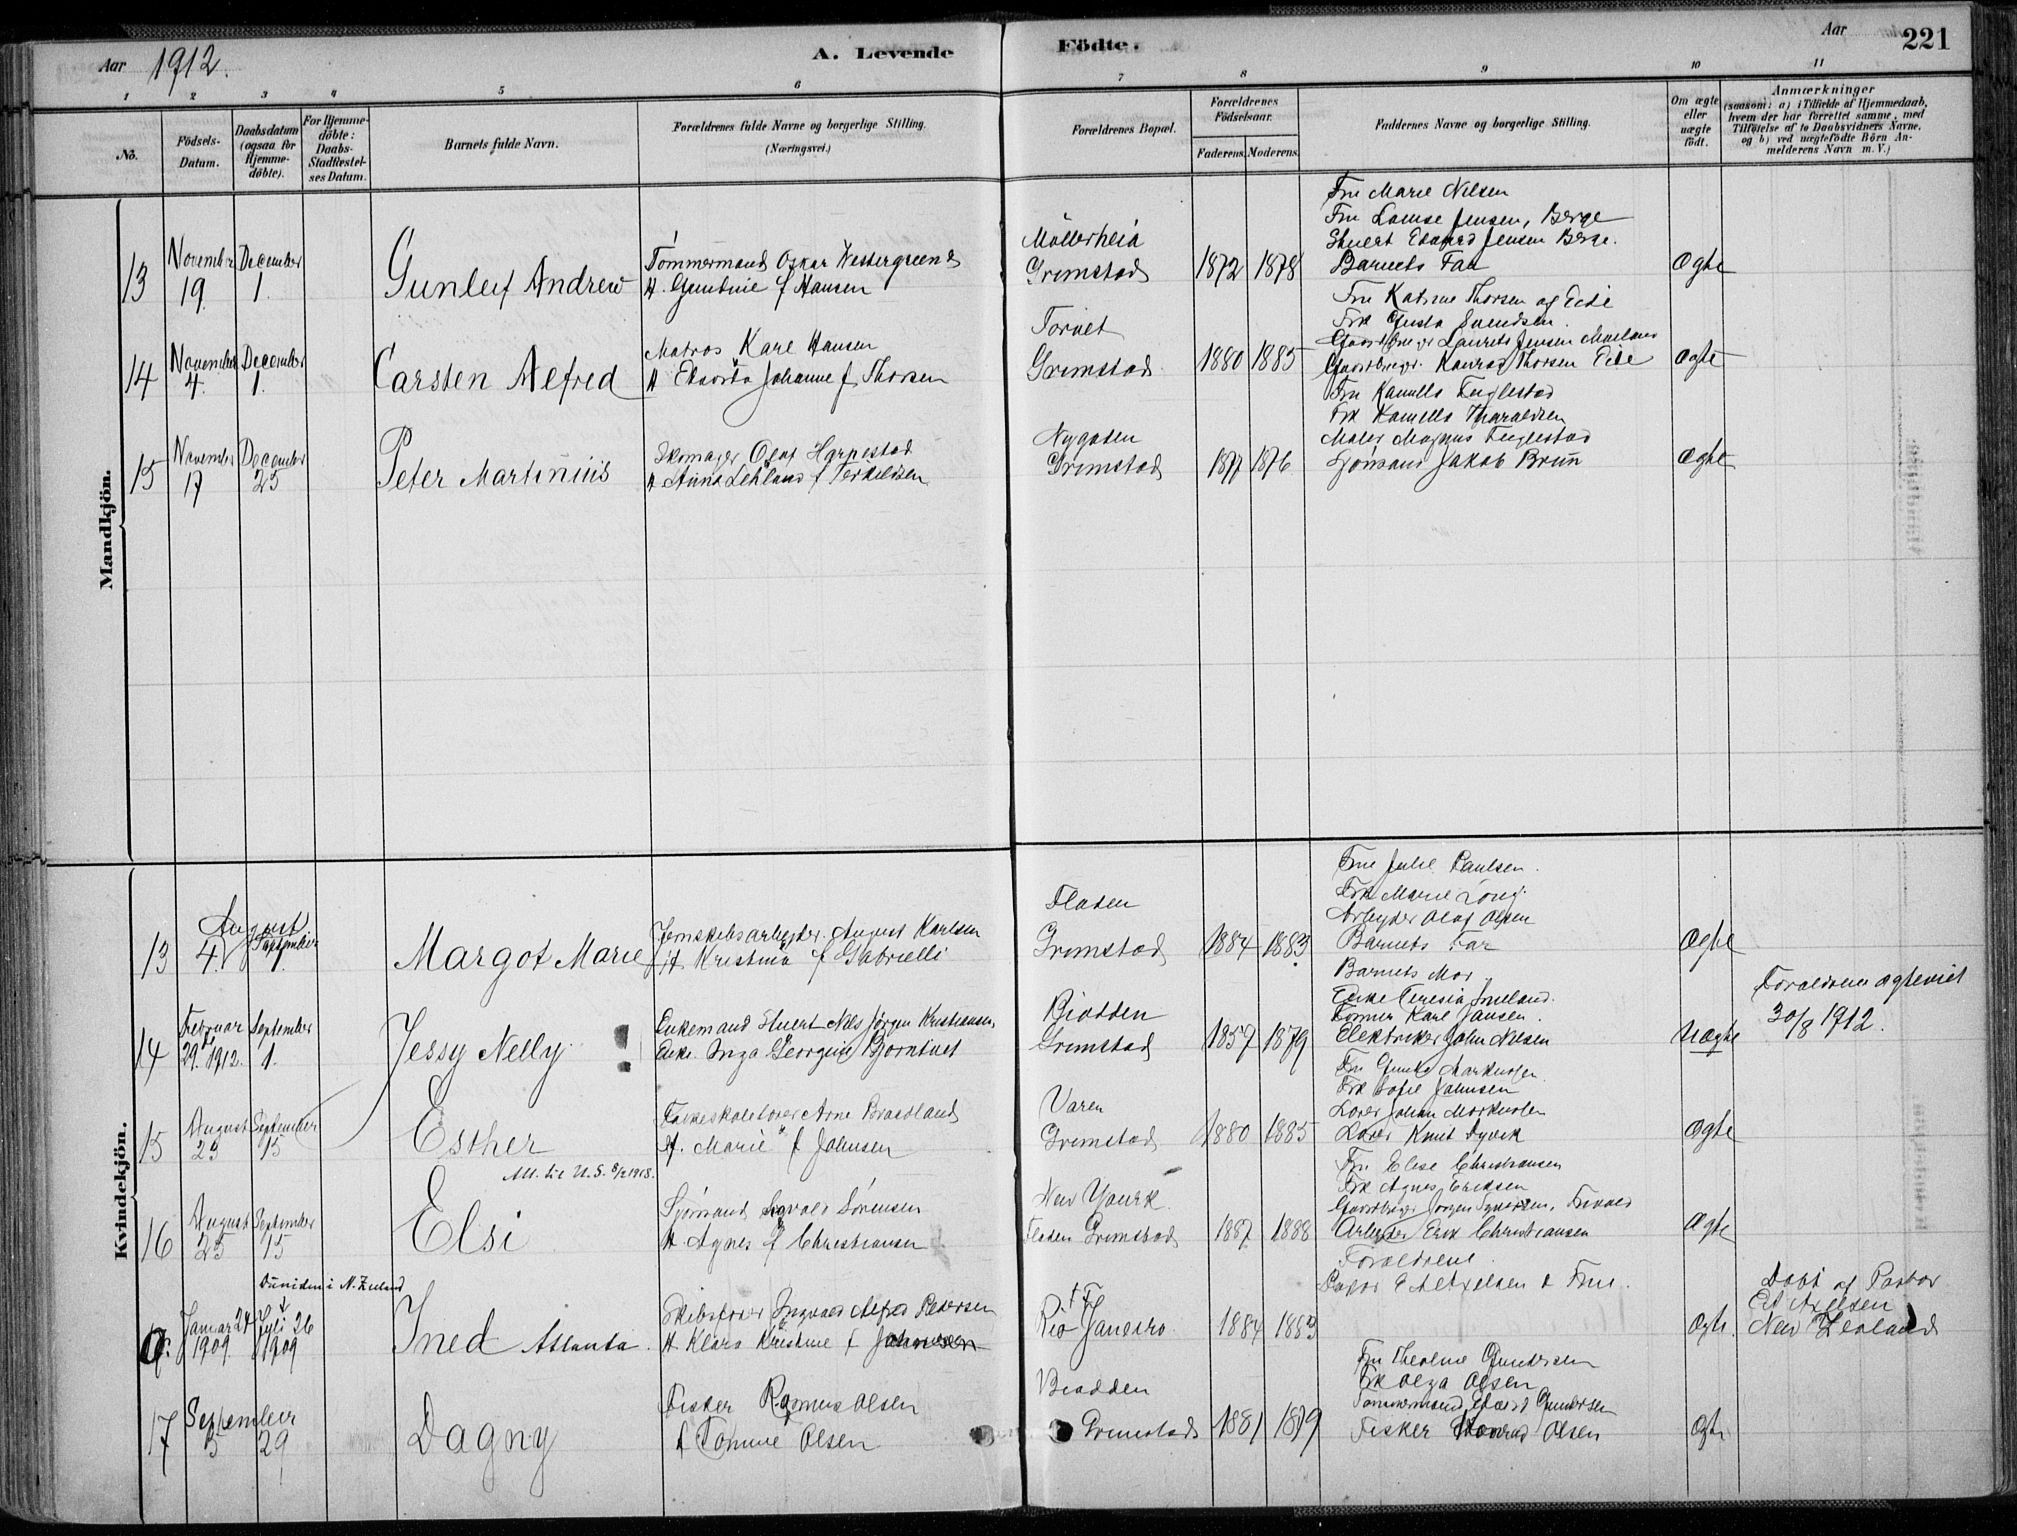 Aar 1912.
A. Levende
Födte.
Aar
221
1 2 3 4 5 6 7 8 9 10 11
No.
Födsels-Datum.
Daabsdatum (ogsaa for Hjemme-döbte).
For Hjemme-döbte: Daabs-Stadfestel-ses Datum.
Barnets fulde Navn.
Forældrenes fulde Navne og borgerlige Stilling.
(Næringsvei.)
Forældrenes Bopæl.
Forældrenes Födselsaar.
Faderens. Moderens.
Faddernes Navne og borgerlige Stilling.
Om ægte eller uægte födt.
Anmærkninger
(saasom: a) i Tilfælde af Hjemmedaab, hvem der har forrettet samme, med Tilföielse af to Daabsvidners Navne, og b) ved uægtefödte Börn An-melderens Navn m. V.)
Mandkjön.
13
November 19
December 1.
Gunleif Andrew
Tømmermand Oskar Westergreen &
H. Gundine f Hansen
Møllerheia
Grimstad
1872 1878
Fru Marie Nilsen
Fru Louise Jensen, Berge
Stuert Edvard Jensen Berge.
Barnets Far
Ægte
14
November 4.
December 1.
Carsten Alfred
Matros Karl Hansen
H Edvarda Johanne f. Thorsen
Torvet
Grimstad
1880 1885
Fru Katrine Thorsen og Eide
Frk Gusta Svendsen.
Gaardbruger Laurits Jensen Moeland
Gaardbruger. Konrad Thorsen Eide
Ægte
15
November 17
December 25
Peter Martinius
Skomager Olaf Harpestad
H Anna Lekland f Terkildsen
Nygaden
Grimstad
1877 1876
Fru Kamilla Fuglestad
Frk Kamilla Tharaldsen
Maler Magnus Fuglestad
Sjømand Jakob Brun
Ægte
Kvindekjön.
13
August 4
September 1.
Margot Marie
Jernskibsarbeyder. August Karlsen
H Kristina f Gabrielli
Fladen
Grimstad
1884 1883
Fru Julie Paulsen.
Frk Marie
Arbeyder Olaf Olsen
Barnets Far
Ægte
14
Februar 29. 1912.
September 1.
Jessy Nelly
Enkemand Stuert Nils Jørgen Kristiansen,
Enke Inga Georgine Bjorntvet
Biodden
Grimstad
1857 1879
Barnets Mor
Enke Teresia
Former Karl Jansen.
Elektriker John Nilsen
Uægte
Forældrene ægteviet
30/8 1912.
15
August 23
September 15
Esther
Folkeskolelærer Arne Braadland
H. Marie f Johnsen
Att. til U.S. 1918.
Varen
Grimstad
1880 1885
Fru
Frk Sofie Johnsen
Lærer Johan
Lærer Knut Dyvik
Ægte
16
August 25
September 15
Elsi
Sjømand Sigvald Sørensen
H Agnes f Christiansen
New Yourk
Fladen Grimstad
1887 1888
Fru Elise Christiansen
Frk Agnes Eriksen
Gaardbruger Jørgen
Arbeyder Erik Christiansen
Ægte
Duniden i N. Zeeland
Januar 24 1909
Juli 26 1909
Ined Atlanta.
Skibsfører Ingvald Alfred Pedersen
H Klara Kristine f Johnsen
Rio Janeiro
1884 1883
Forældrene
Pastor Axelsen & Frue.
Ægte.
Døbt af Pastor
Axelsen
New Zealand
17
September 5
29
Dagny
Fisker Rasmus Olsen
Tomine Olsen
Biodden
Grimstad
1881 1879
Fru Theoline Gundersen
Frk Olga Olsen
Tømmermand Edvard Gundersen
Fisker Konrad Olsen
Ægte